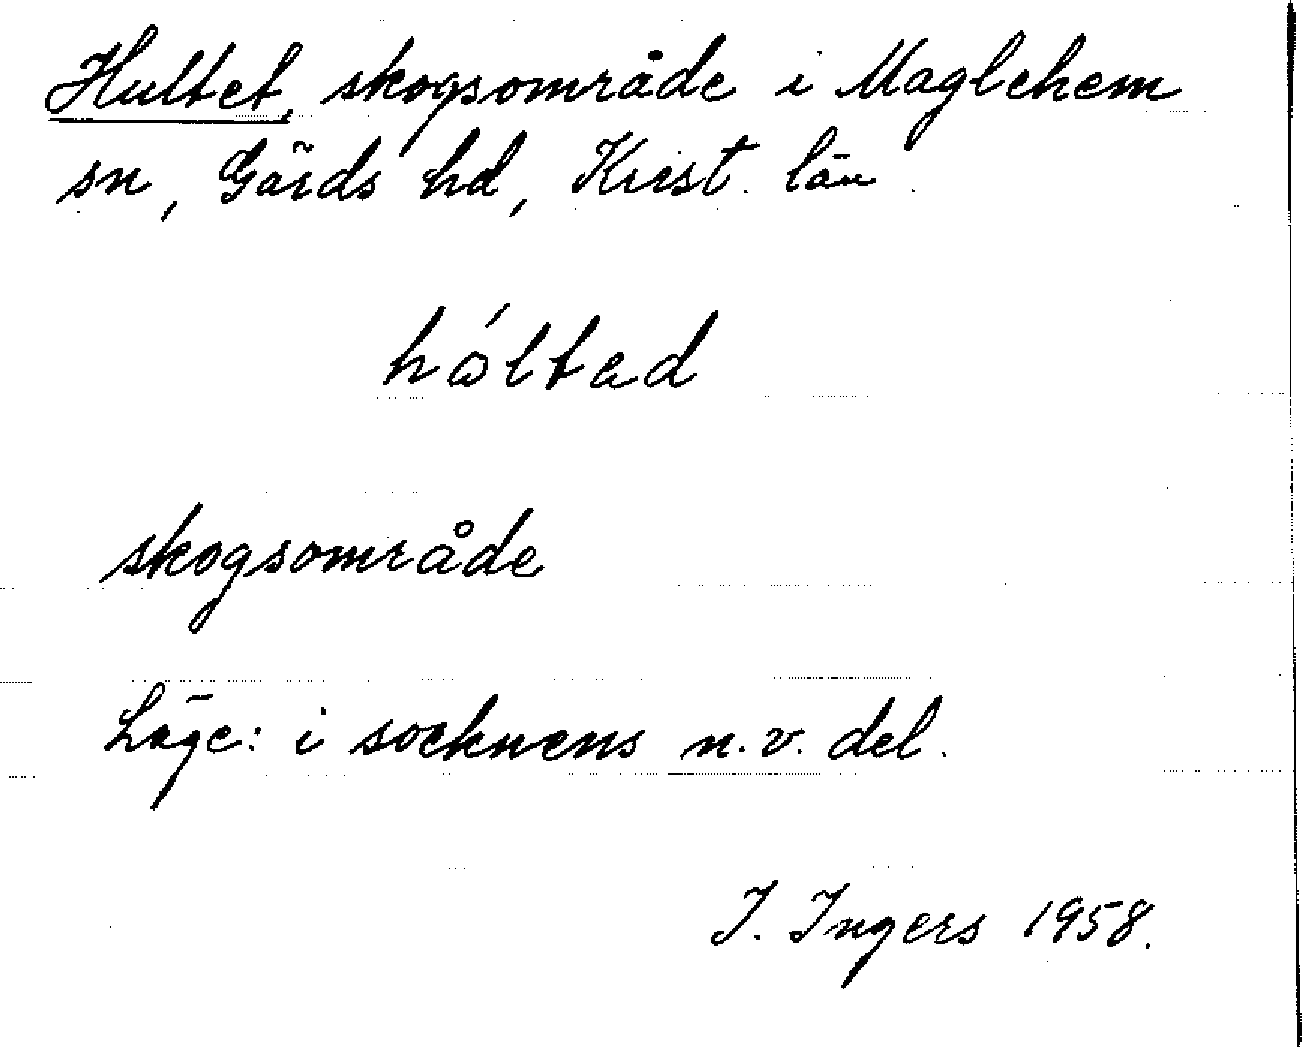 Hultet, skogsområde i Maglehem
sn, Gärds hd, Krist. län.
hóltad
skogsområde
Läge: i socknens n.v. del.
I. Ingers 1958.